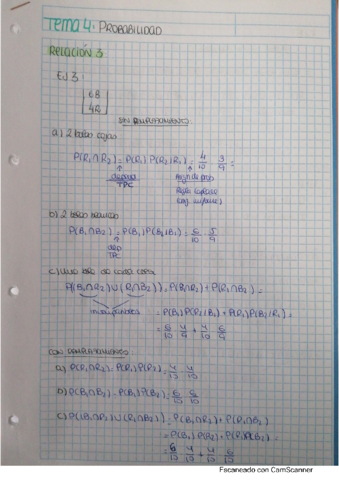 Tema 4. PROBABILIDAD
RELACIÓN 3
EJ 3:
6B
4R
SIN REEMPLAZAMIENTO
a) 2 bolas rojas
P(R₁∩R₂) = P(R₁) P(R₂/R₁) = 4/10 · 3/9 =
TPC
b) 2 bolas
P(B₁∩B₂) = P(B₁) P(B₂/B₁) = 6/10 · 5/9
dep
TPC
c) Una bola de cada color
P((B₁∩R₂)∪(R₁∩B₂)) = P(B₁∩R₂) + P(R₁∩B₂) =
= P(B₁) P(R₂/B₁) + P(R₁) P(B₂/R₁) =
= 6/10 · 4/9 + 4/10 · 6/9
CON REEMPLAZAMIENTO
a) P(R₁∩R₂) = P(R₁) P(R₂) = 4/10 · 4/10
b) P(B₁∩B₂) = P(B₁) P(B₂) = 6/10 · 6/10
c) P((B₁∩R₂)∪(R₁∩B₂)) = P(B₁∩R₂) + P(R₁∩B₂)
= P(B₁) P(R₂) + P(R₁) P(B₂) =
= 6/10 · 4/10 + 4/10 · 6/10
Escaneado con CamScanner